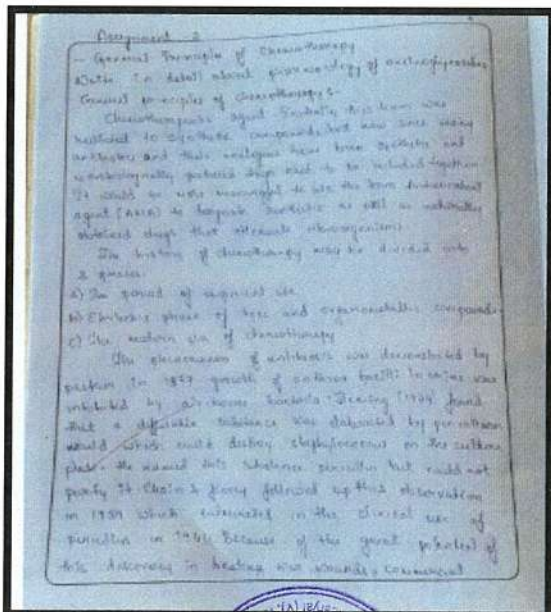 Assignment - 2
- General Principle of Chemotherapy
Write in detail about pharmacology of aminoglycosides
General principles of chemotherapy :-
Chemotherapeutic agent this term was
restricted to synthetic compounds but now since many
antibiotics and their analogues have been synthetic and
microbiologically produced drugs need to be included together
It would be more meaningful to use the term Antimicrobial
agent (AMA) to synthetic as well as naturally
obtained drugs that attenuate microorganisms.
The history of chemotherapy may be divided into
3 phases.
a) The period of empirical use
b) phase of dyes and organometallic compounds
c) The modern era of chemotherapy
The phenomenon of antibiosis was demonstrated by
in growth of anthrax bacilli in urine was
inhibited by air-borne bacteria. found
that a diffusible substance was elaborated by penicillium
mould which could destroy staphylococcus on the culture
plate. He named this substance penicillin but could not
purify it. Chain & followed up this observation
in 1939 which culminated in the clinical use of
penicillin in 1941. Because of the great potential of
this discovery in healing war wounds, commercial